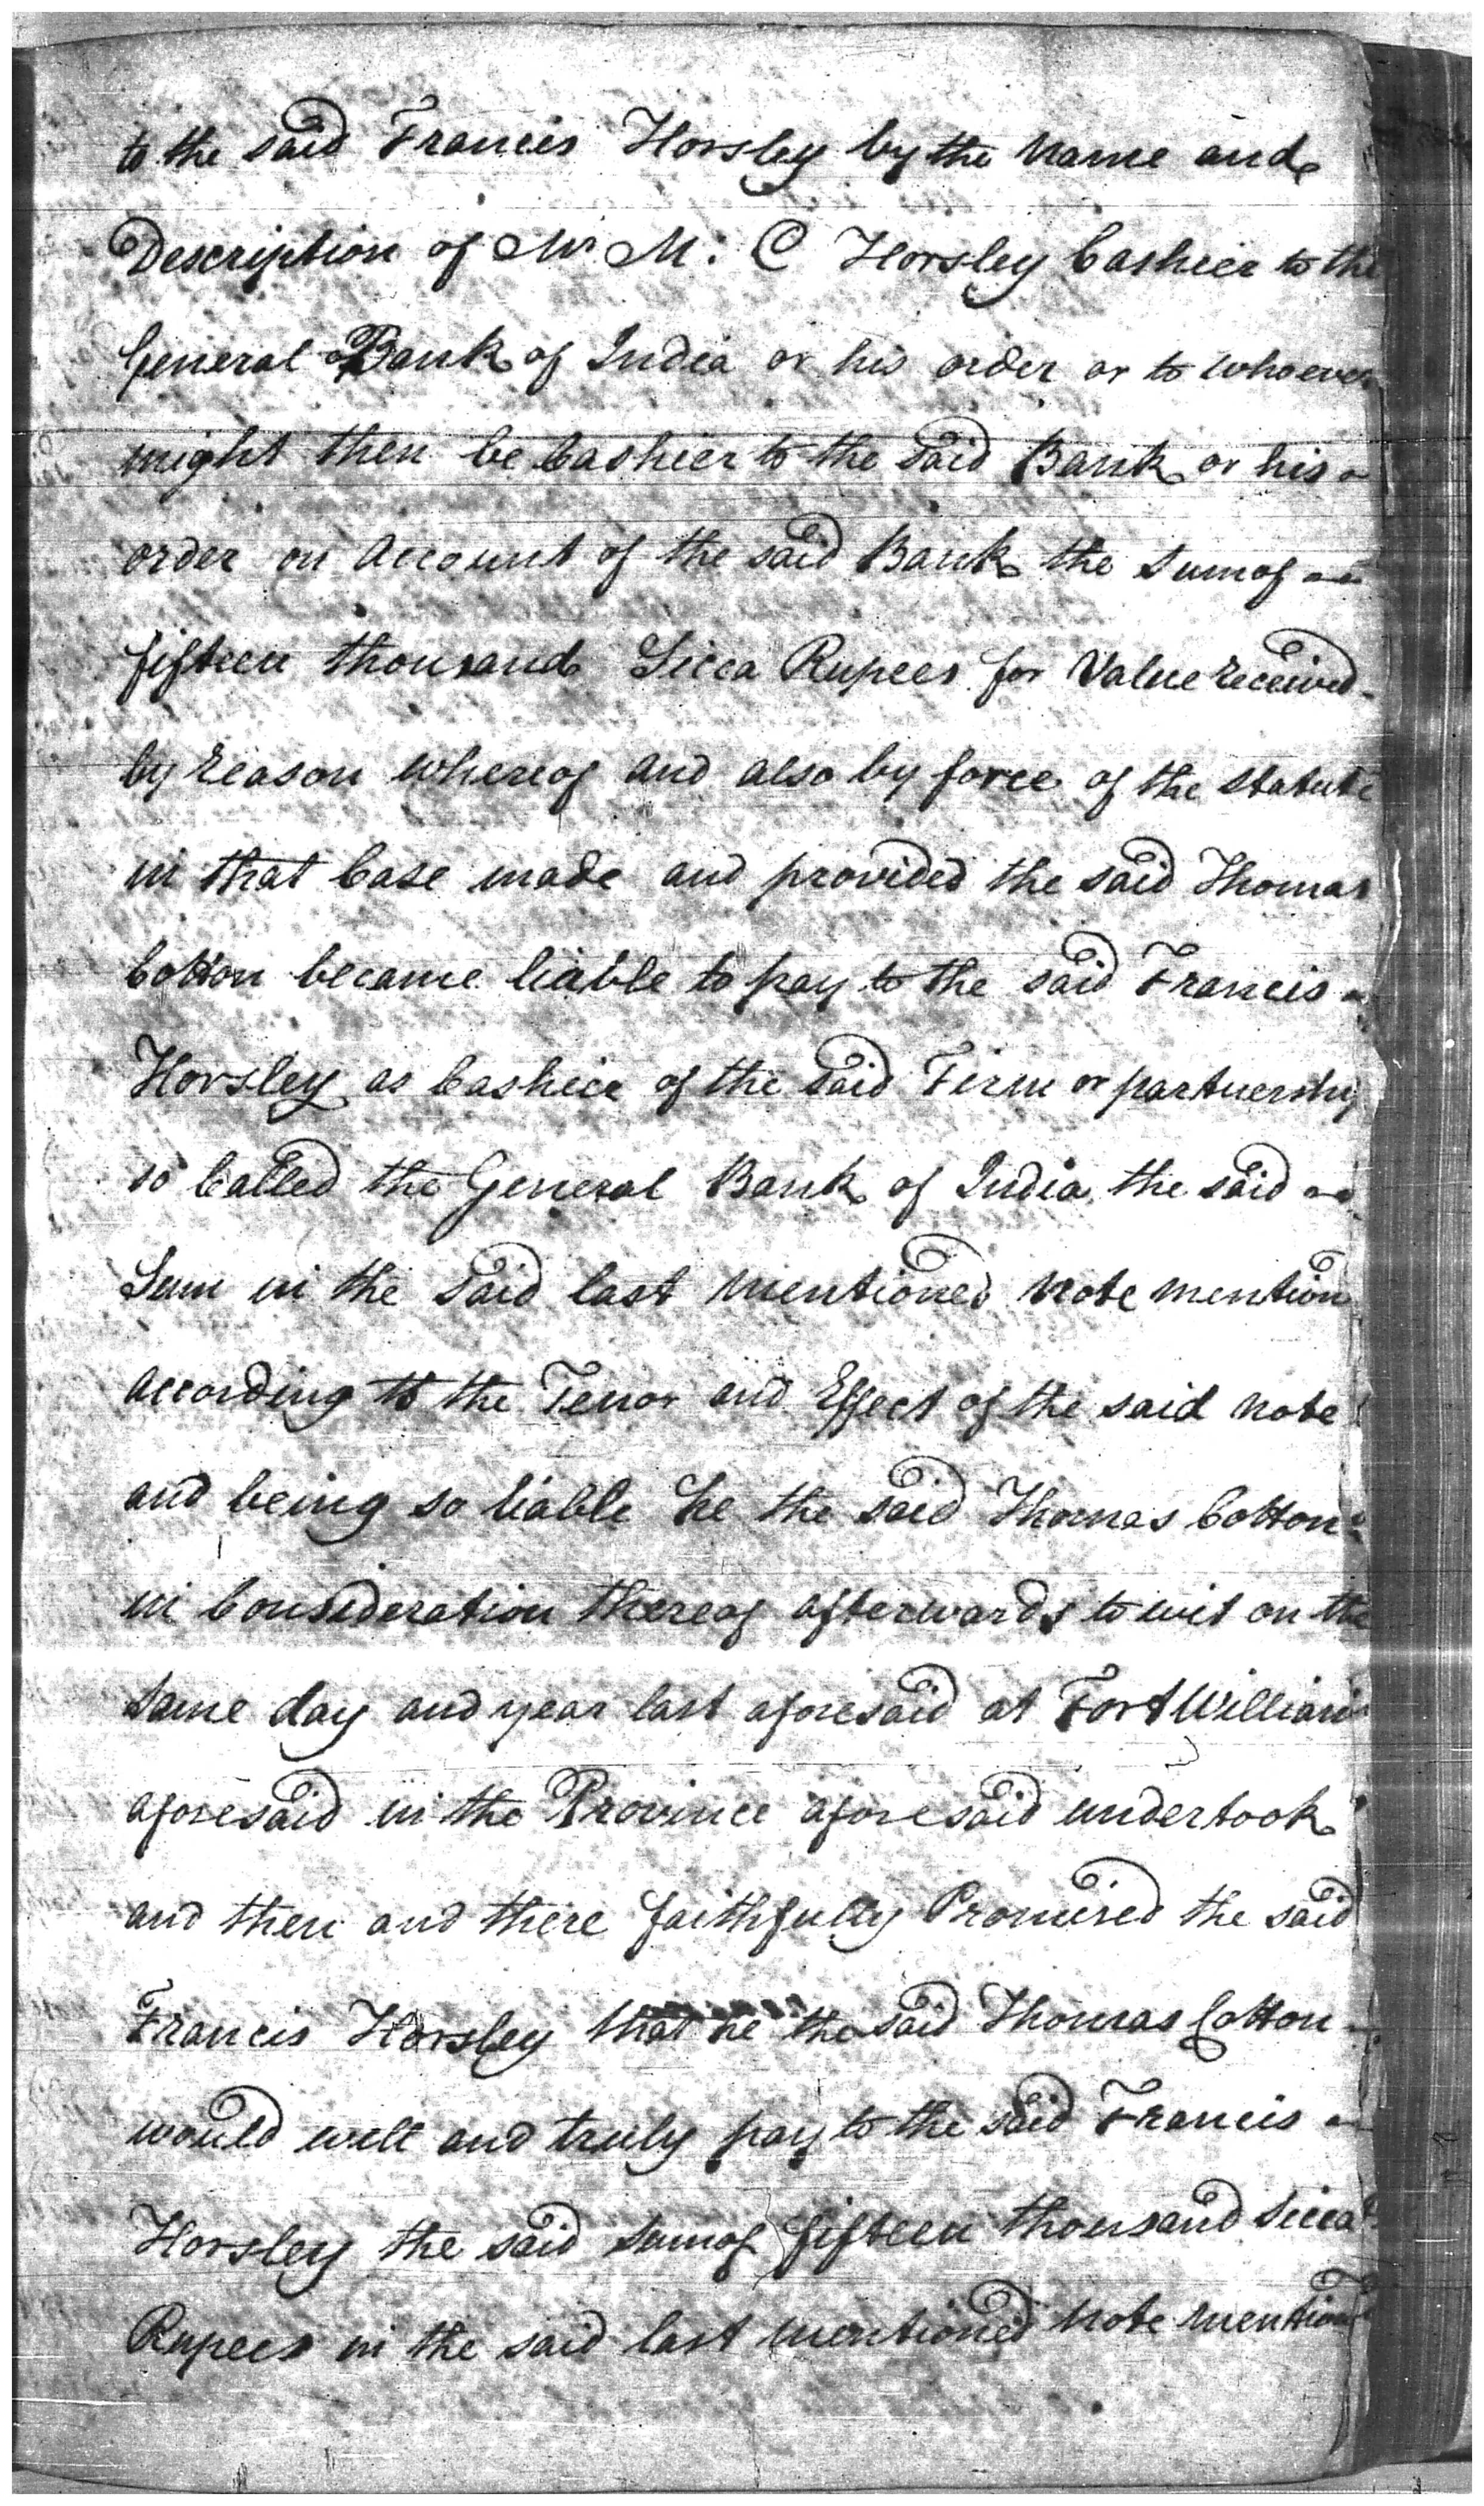 to the said Francis Horsley by the Name and
Description of Mr. M: C Horsley Cashier to the
General Bank of India or his order or to whoever
might then be Cashier to the said Bank or his
order on Account of the said Bank the Sum of
fifteen thousand Sicca Rupees for Value received
by reason whereof and also by force of the Statute
in that Case made and provided the said Thomas
Cotton became liable to pay to the said Francis
Horsley as Cashier of the said Firm or partnership
so Called the General Bank of India the said
Sum in the said last mentioned Note mentiond
According to the Tenor and Effect of the said Note
and being so liable he the said Thomas Cotton
in Consideration thereof afterwards to wit on the
same day and year last aforesaid at Fort William
aforesaid in the Province aforesaid undertook
and then and there faithfully Promised the said
Francis Horsley that he the said Thomas Cotton
would well and truly pay to the said Francis
Horsley the said Sum of fifteen thousand Sicca
Rupees in the said last mentioned Note mentiond